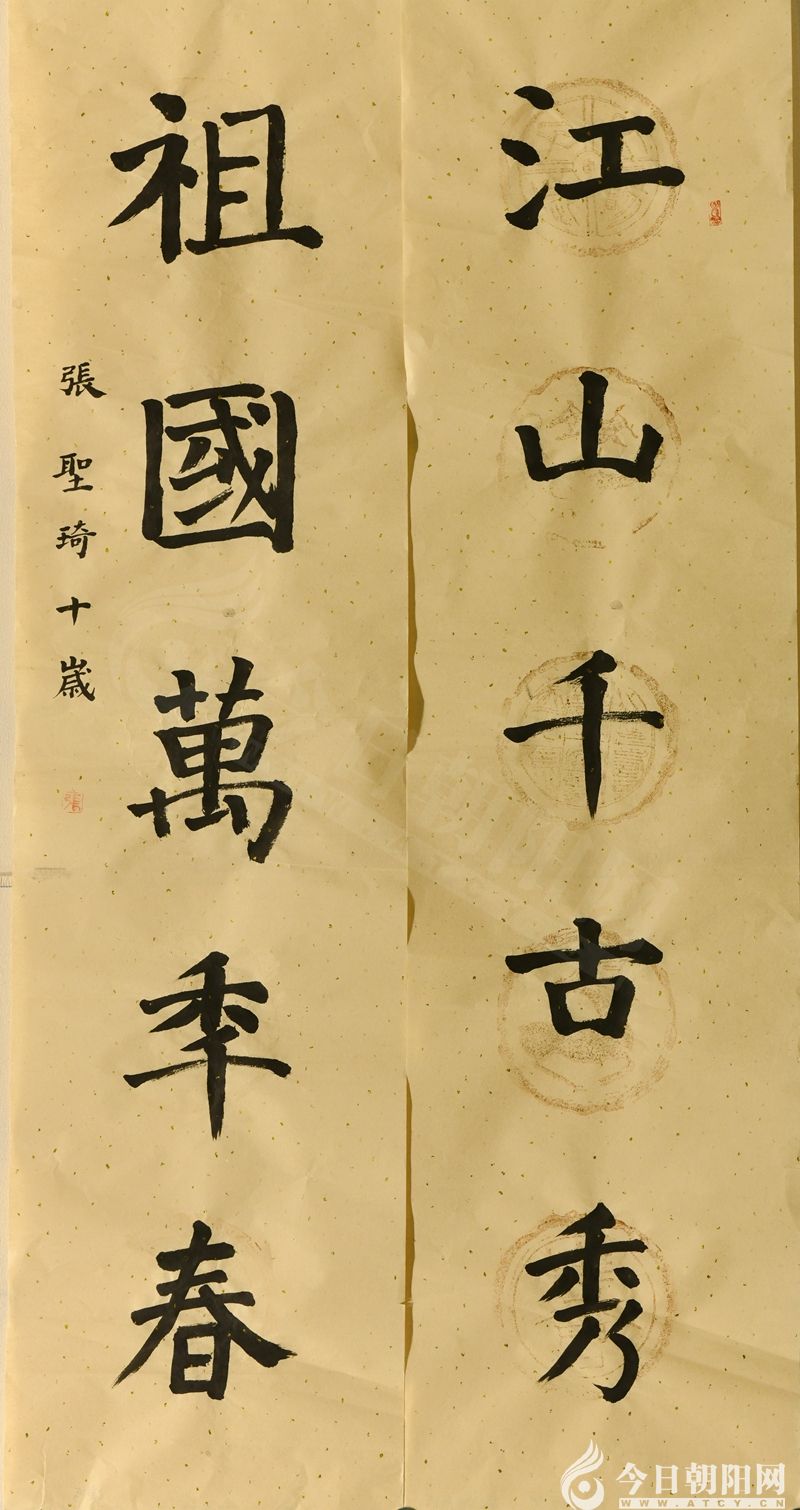 江山千古秀
祖國萬年春
張聖琦十歲
張
今日朝阳网
WWW.ATCY.CN